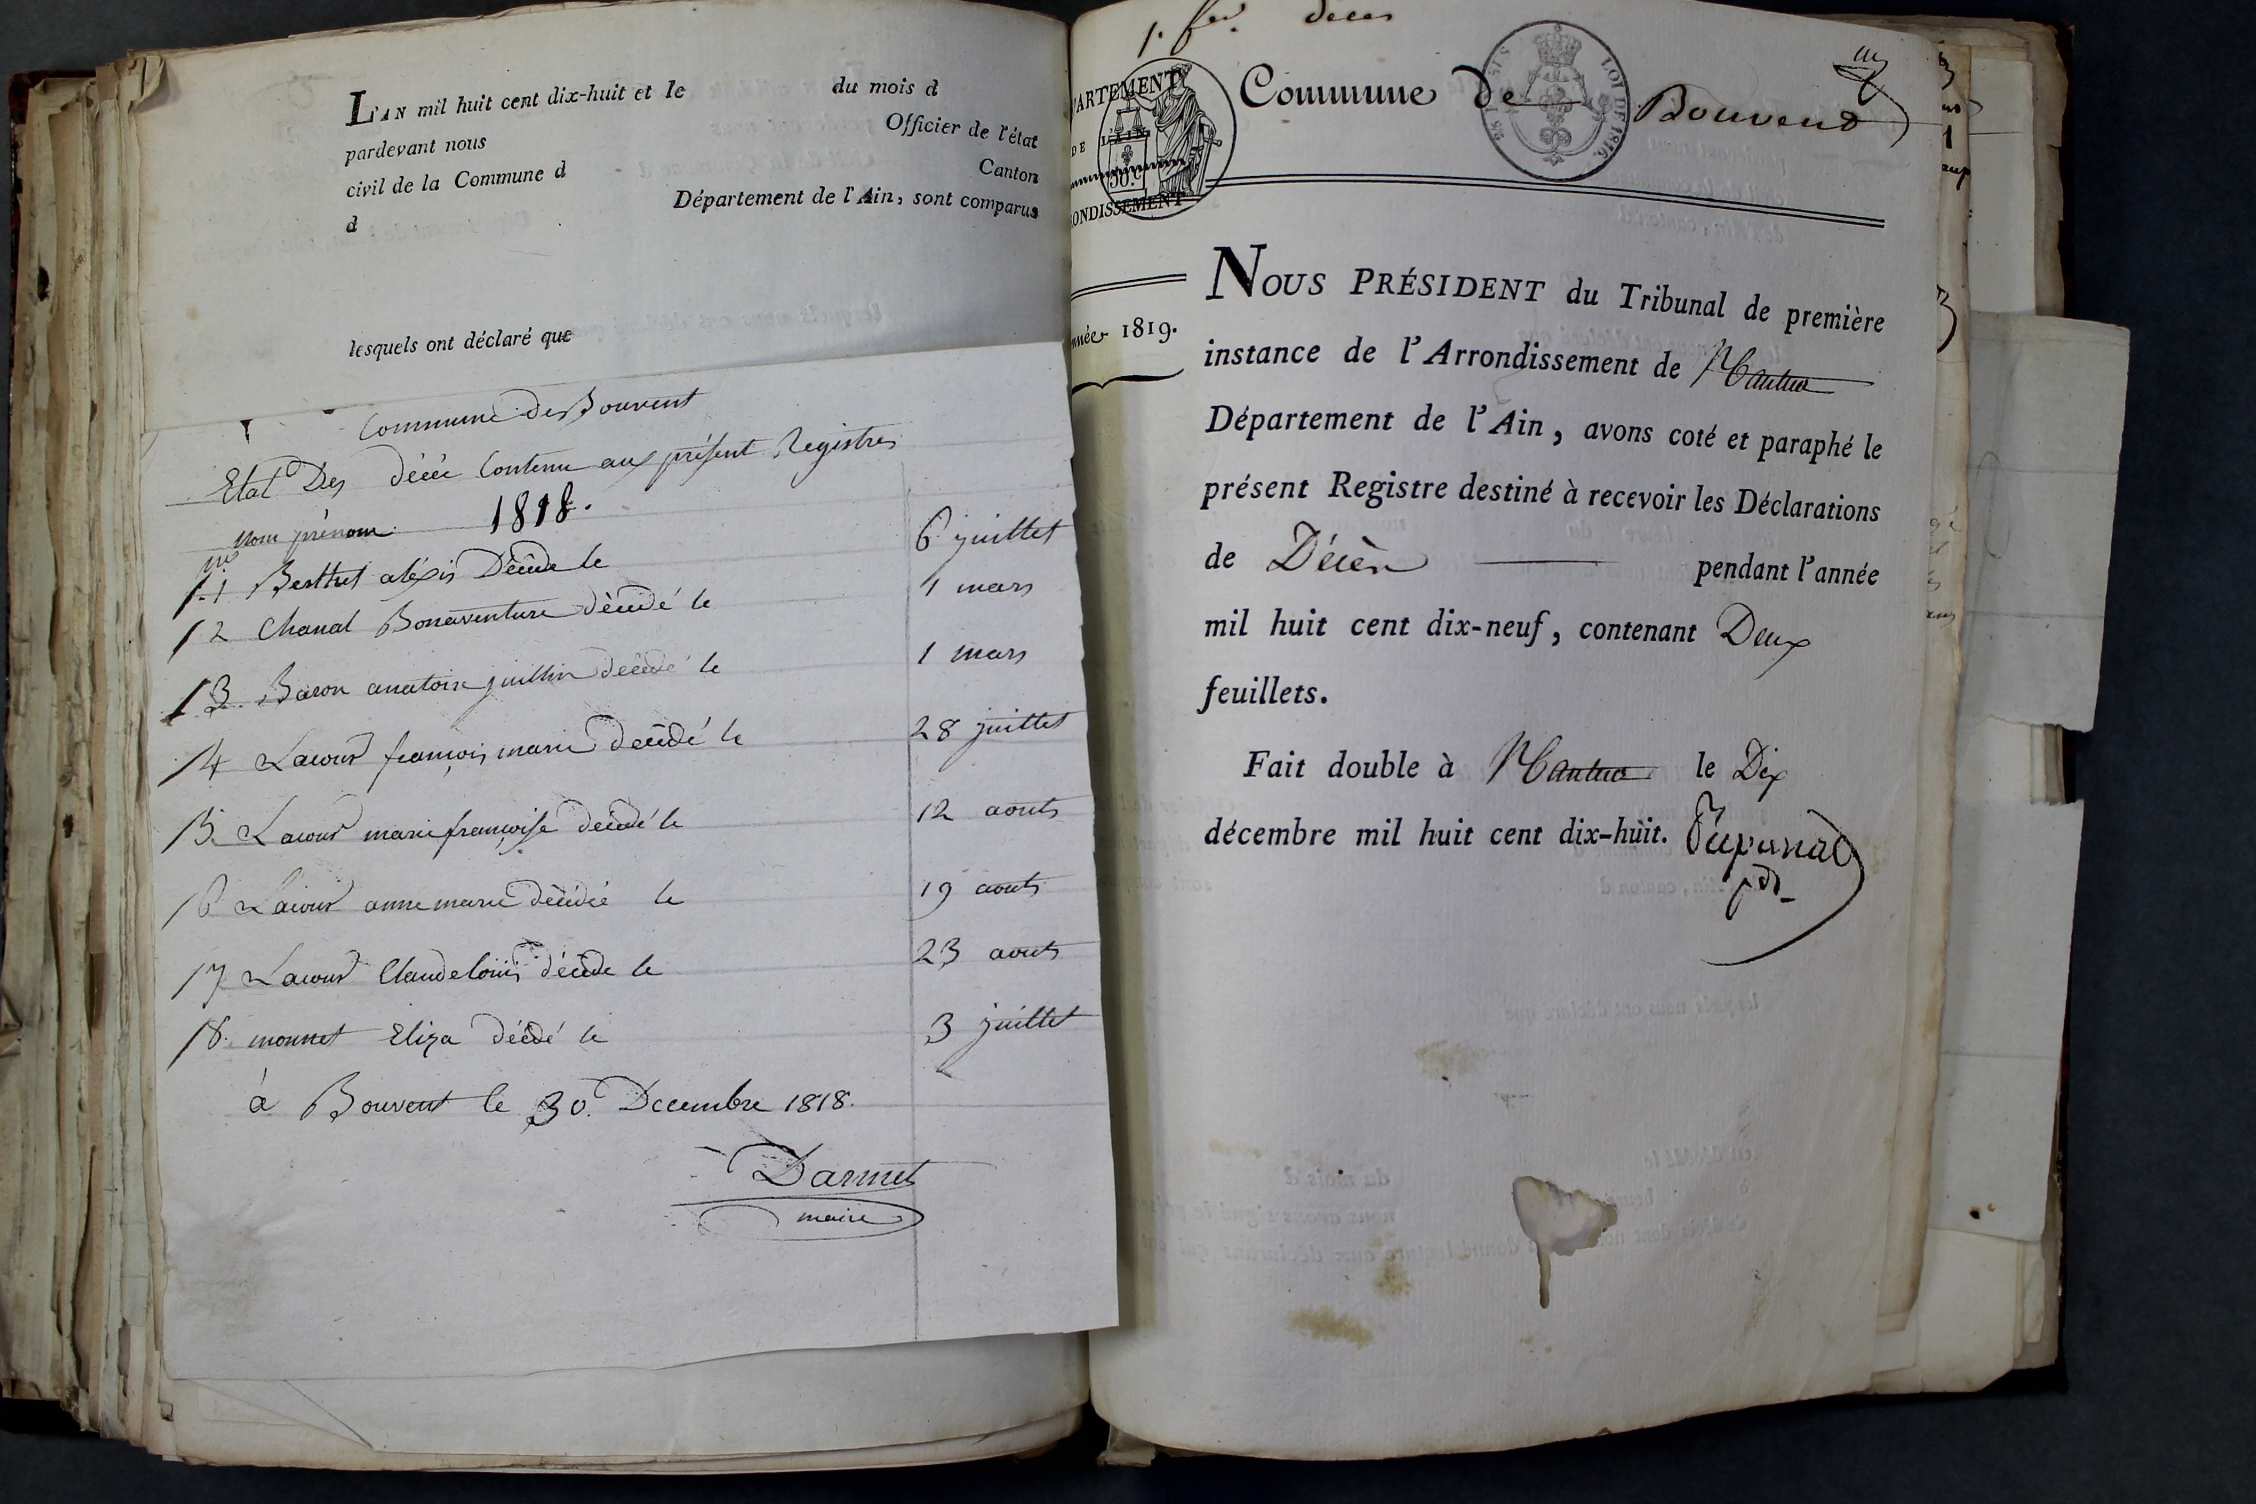 L'AN mil huit cent dix-huit et le du mois d
pardevant nous Officier de l'état
civil de la Commune d Canton
d Département de l'Ain, sont comparus
lesquels ont déclaré que
Commune de Bouvent
Etat Des décée Contenu aux présent Registres
1818.
nom prénom
1 Berthet aléxis Décédé le 6 juillet
2 Chanal Bonaventure décédé le 1 mars
3 Baron anatoire juillin décédé le 1 mars
4 Lacour françois marie decédé le 28 juillet
5 Lacour marie françoise decédé le 12 aouts
6 Lacour anne marie décédée le 19 aouts
7 Lacour Claude louis décéde le 23 aouts
8. monnet Eliza décédé le 3 juillet
à Bouvent le 30. Decembre 1818.
Darmet
maire
1. fer. deces
PARTEMENT
DE L'AIN
50.c
ONDISSEMENT
Commune de Bouvent
LOI DE 1816.
nnée 1819.
NOUS PRÉSIDENT du Tribunal de première
instance de l'Arrondissement de Nantua
Département de l'Ain, avons coté et paraphé le
présent Registre destiné à recevoir les Déclarations
de Décès pendant l'année
mil huit cent dix-neuf, contenant Deux
feuillets.
Fait double à Nantua le Dix
décembre mil huit cent dix-huit.